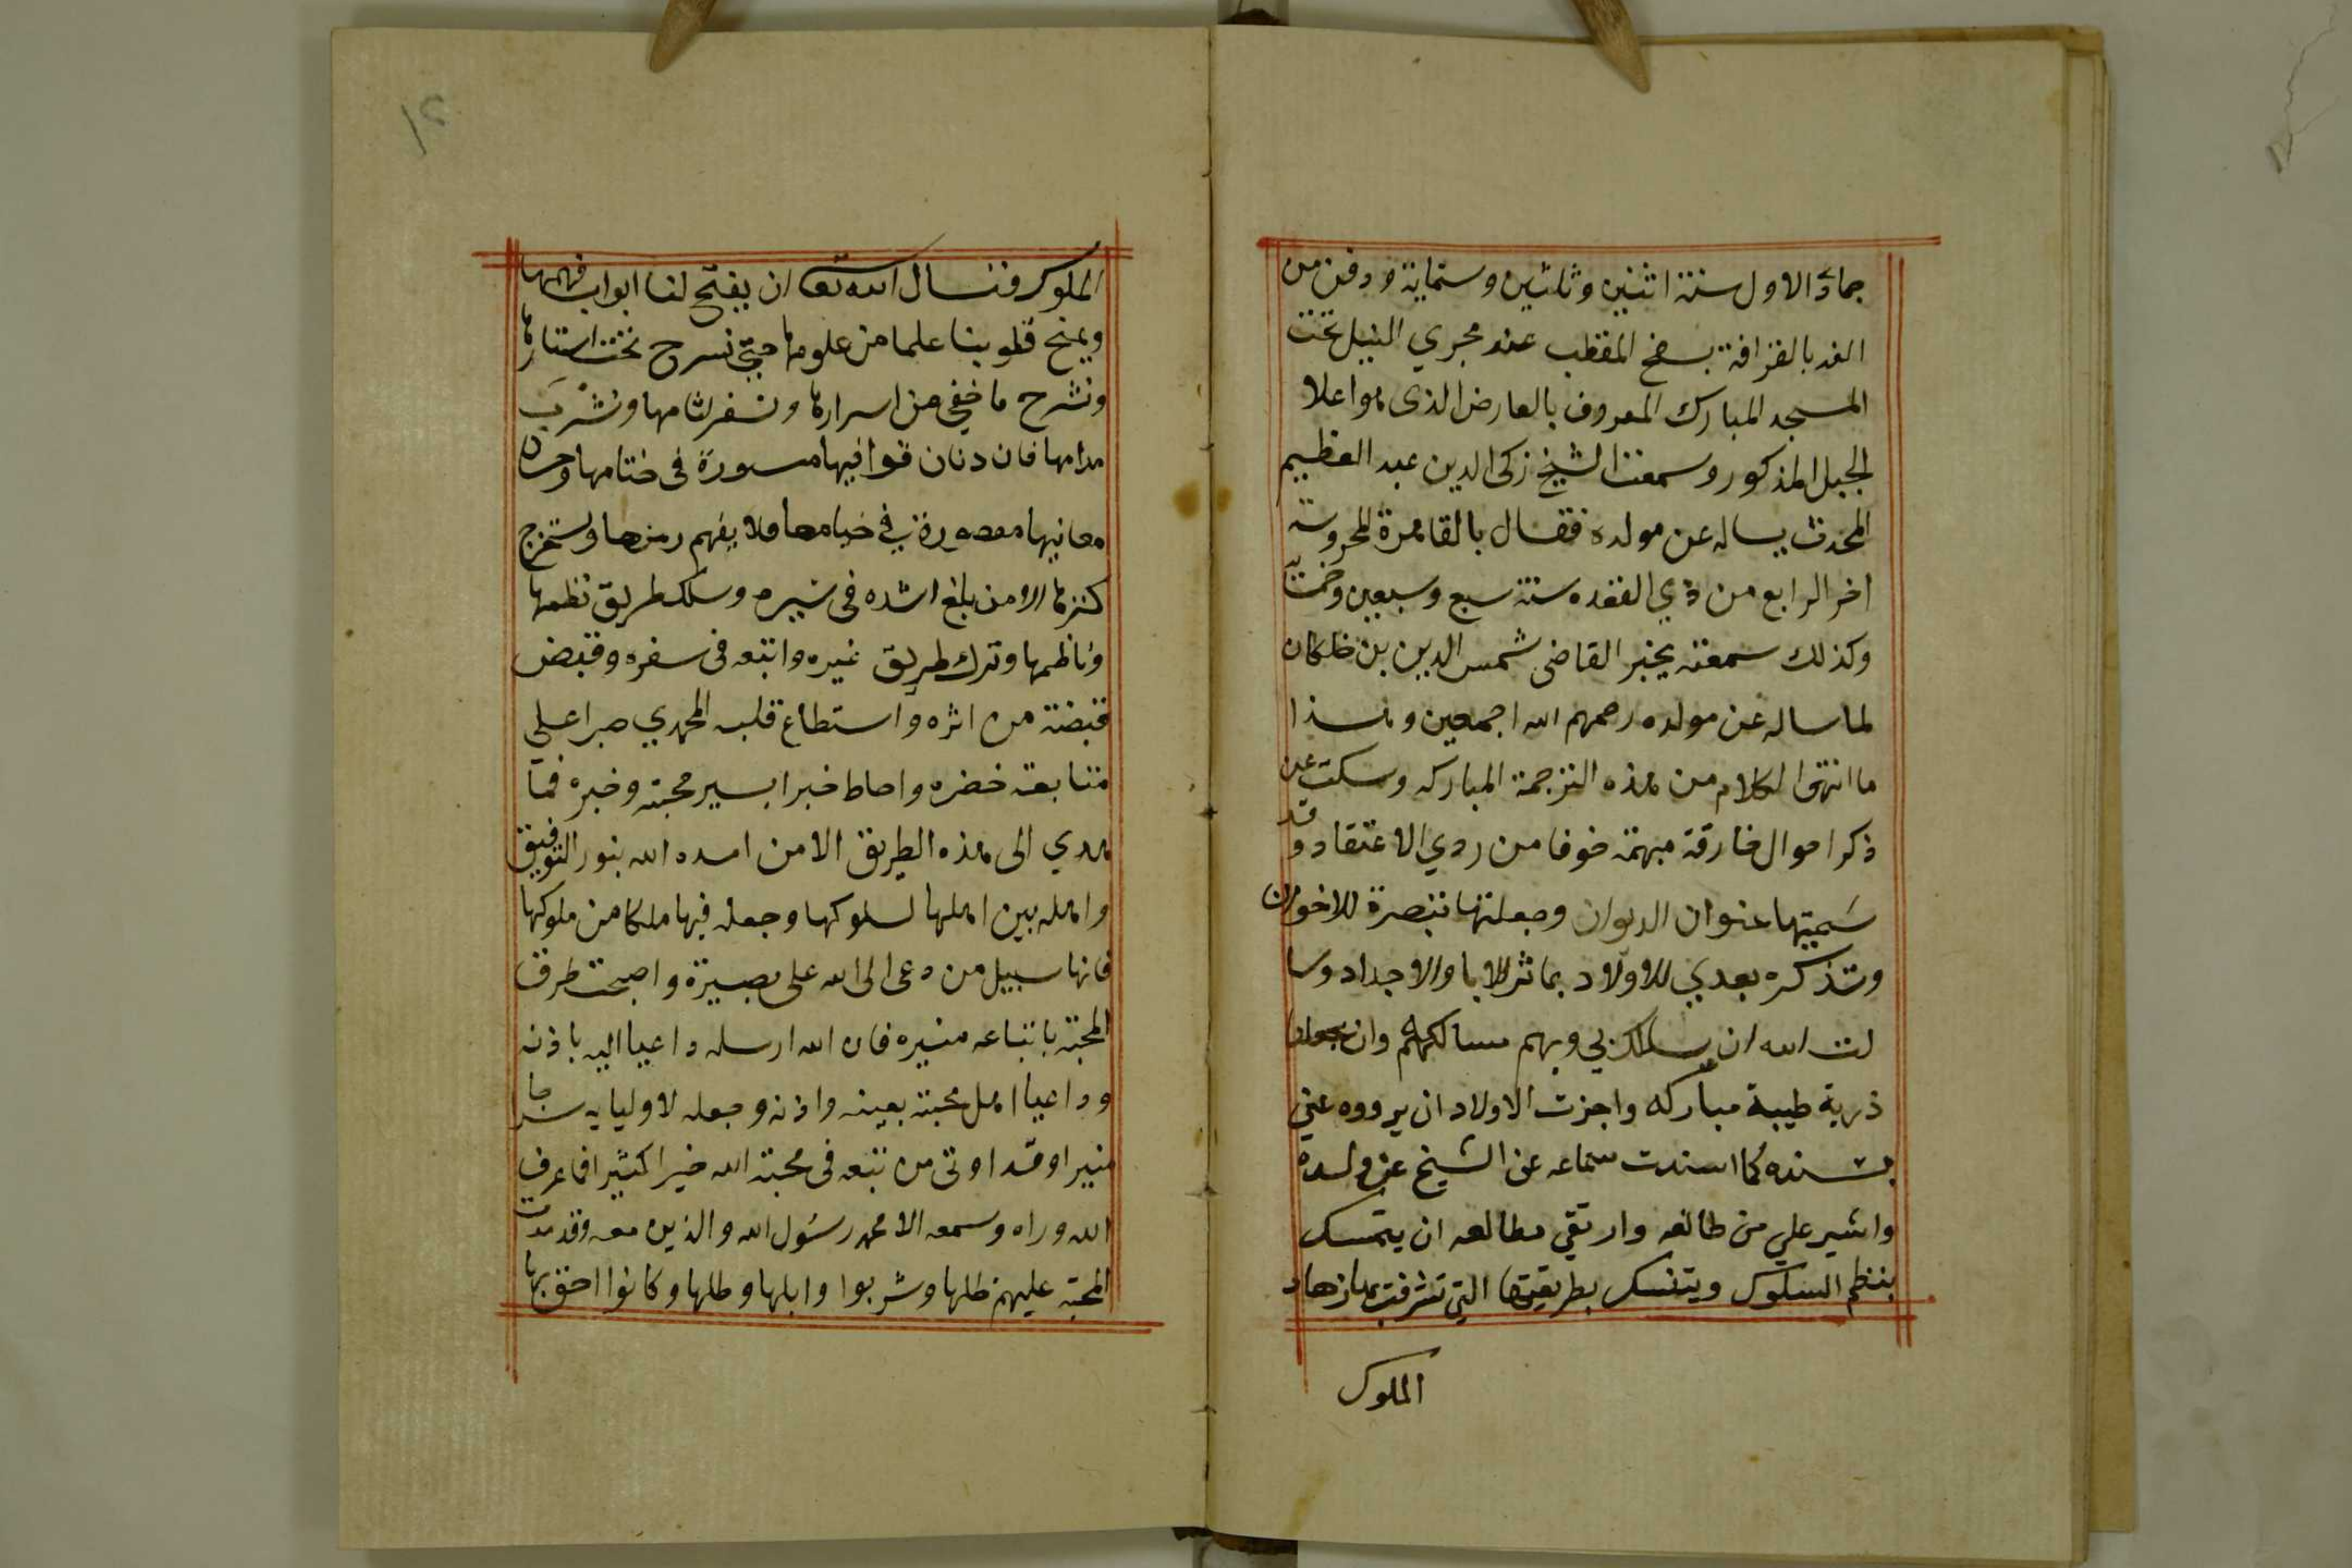 جمادى الاول سنة اثنين وثلثين وستماية ودفن من
الغد بالقرافة بسفح المقطب عند مجري النيل تحت
المسجد المبارك المعروف بالعارض الذى هو اعلا
الجبل المذكور وسمعت الشيخ زكى الدين عبد العظيم
المحدث يساله عن مولده فقال بالقاهرة المحروسة
اخر الرابع من ذي القعده سنة سبع وسبعين وخمسماية
وكذلك سمعته يخبر القاضى شمس الدين بن خلكان
لما ساله عن مولده رحمهم الله اجمعين وهذا
ما انتهى الكلام من هذه الترجمة المباركه وسكت عن
ذكر احوال خارقة مبهمة خوفا من ردي الاعتقاد وقد
سميتها عنوان الديوان وجعلتها تبصرة للاخوان
وتذكره بعدي للاولاد بماثر الابا والاجداد وسا
لت الله ان يسلك بي وبهم مسالكهم وان يجعلنا
ذرية طيبة مباركه واجزت الاولاد ان يرووه عني
بسنده كما اسندت سماعه عن الشيخ عن ولده
واشير علي من طالعه وارتقي مطالعه ان يتمسك
بنظم السلوك ويتنسك بطريقتها التي تشرفت بها زهاد
الملوك
١٢
الملوك فنسال الله تعا ان يفتح لنا ابواب فهمها
ويمنح قلوبنا علما من علومها حتي نسرح تحت استارها
ونشرح ما خفي من اسرارها ونسفر لثامها ونشرب
مدامها فان دنان قوافيها مسورة فى ختامها وحسان
معانيها مقصورة في خيامها ولا يفهم رمزها ويستخرج
كنزها الا من بلغ اشده فى سيره وسلك طريق نظمها
وناظمها وترك طريق غيره واتبعه فى سفره وقبض
قبضة من اثره واستطاع قلبه المحمدي صبرا على
متابعة خضره واحاط خبرا بسير محبته وخبره فما
هدي الى هذه الطريق الا من امده الله بنور التوفيق
واهله بين اهلها لسلوكها وجعله فيها ملكا من ملوكها
فانها سبيل من دعى الى الله على بصيرة واصبحت طرق
المحبة باتباعه منيره فان الله ارسله داعيا اليه باذنه
وداعيا اهل محبته بعينه واذنه وجعله لاوليايه سراجا
منيرا وقد اوتى من تبعه فى محبة الله خيرا كثيرا فما عرف
الله وراه وسمعه الا محمد رسول الله والذين معه وقد مدت
المحبة عليهم ظلها وشربوا وابلها وطلها وكانوا احق بها